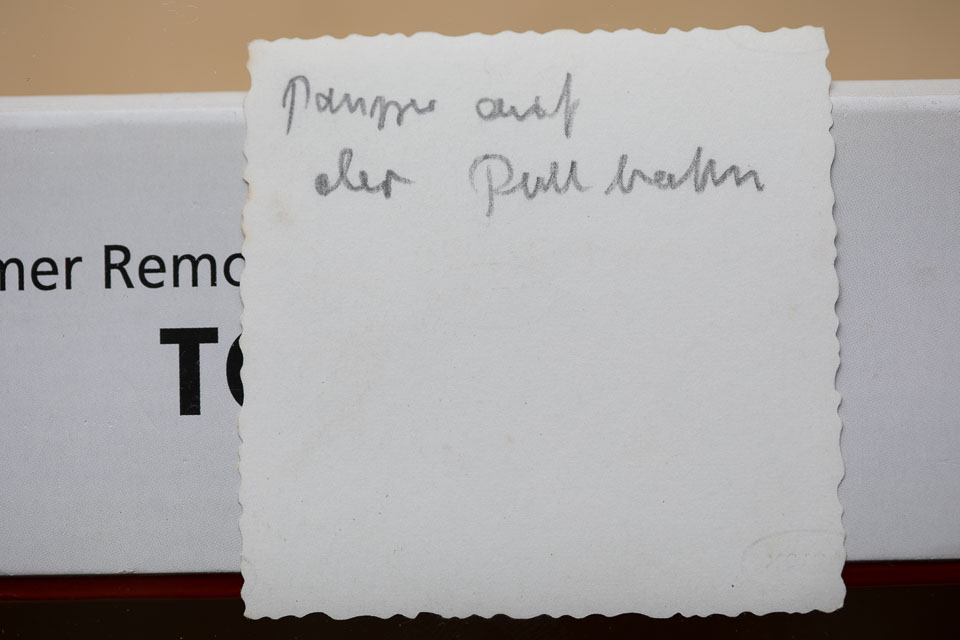 Panzer auf
der Rollbahn
mer Remo
TO